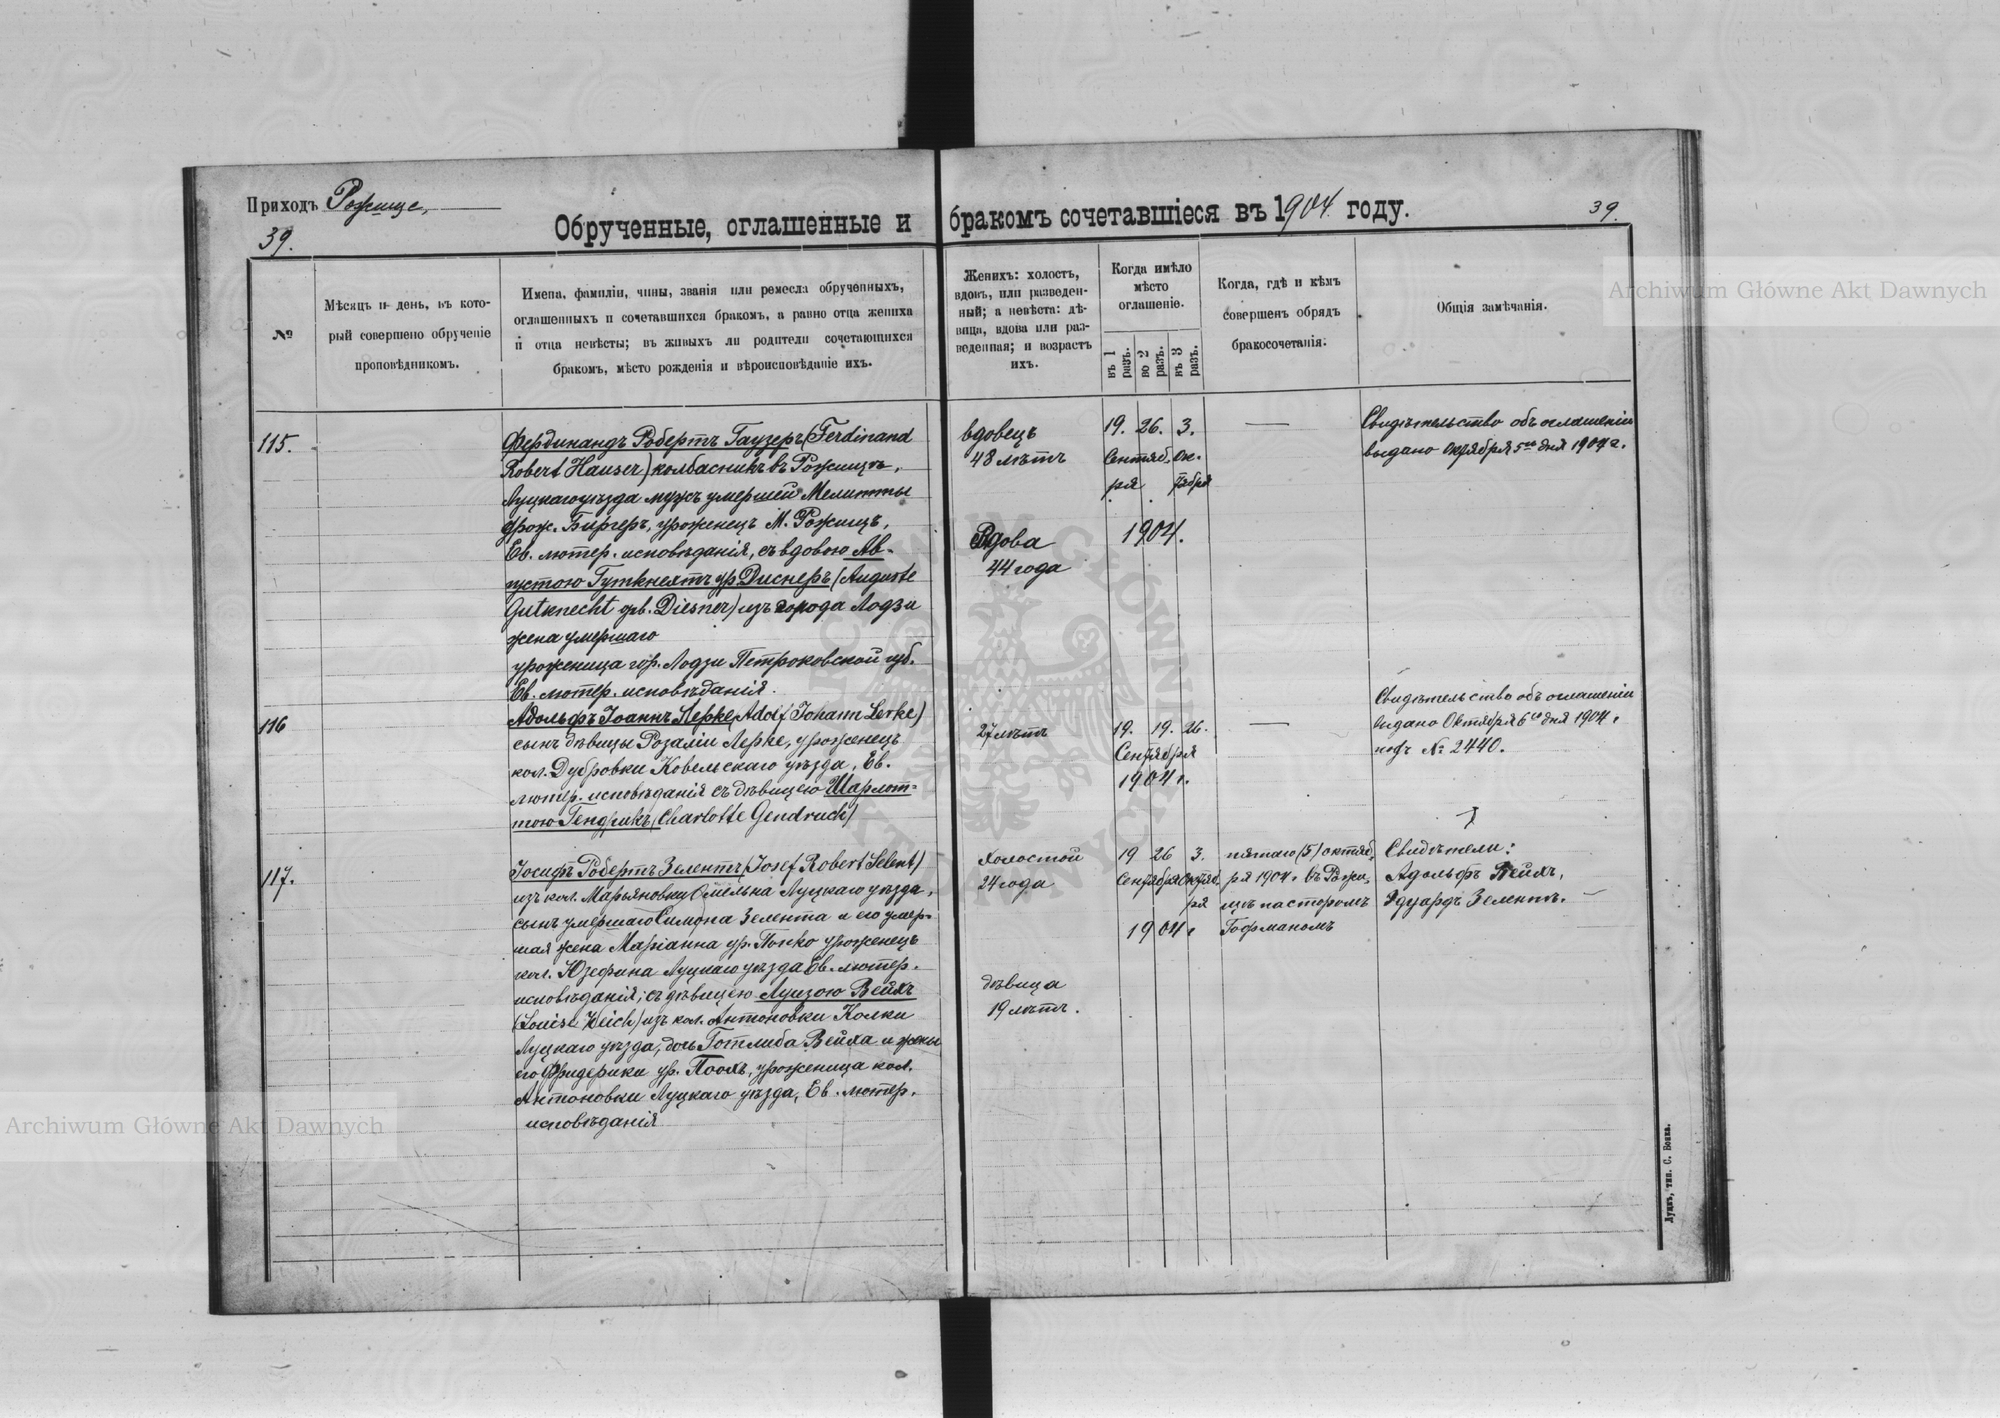 Приходъ Рожище,
39.
Обрученные, оглашенные и бракомъ сочетавшіеся въ 1904 году.
39.
№
Мѣсяцъ и день, въ кото-
рый совершено обрученіе
проповѣдникомъ.
Имена, фамиліи, чины, званія или ремесла обрученныхъ,
оглашенныхъ и сочетавшихся бракомъ, а равно отца жениха
и отца невѣсты; въ живыхъ ли родители сочетающихся
бракомъ, мѣсто рожденія и вѣроисповѣданіе ихъ.
Женихъ: холостъ,
вдовъ, или разведен-
ный; а невѣста: дѣ-
вица, вдова или раз-
веденная; и возрастъ
ихъ.
Когда имѣло
мѣсто
оглашеніе.
въ 1
разъ.
во 2
разъ.
въ 3
разъ.
Когда, гдѣ и кѣмъ
совершенъ обрядъ
бракосочетанія.
Общія замѣчанія.
115.
Фердинандъ Робертъ Гаузеръ (Ferdinand
Robert Hauser) колбасникъ въ Рожищѣ,
Луцкаго уѣзда мужъ умершей Мелитты
урож. Биргеръ, уроженецъ М. Рожищъ,
Ев. лютер. исповѣданія, съ вдовою Ав-
густою Гуткнехтъ ур. Диснеръ (Auguste
Gutknecht gb. Diesner) изъ города Лодзи
жена умершаго
уроженица гор. Лодзи Петроковской губ.
Ев. лютер. исповѣданія.
вдовецъ
48 лѣтъ
Вдова
44 года
19. 26. 3.
Сентяб. Ок-
ря тября
1904.
—
Свидѣтельство объ оглашеніи
выдано Октября 5го дня 1904 г.
116
Адольфъ Іоаннъ Лерке (Adolf Johann Lerke)
сынъ дѣвицы Розаліи Лерке, уроженецъ
кол. Дубровки Ковельскаго уѣзда, Ев.
лютер. исповѣданія съ дѣвицею Шарлот-
тою Гендрикъ (Charlotte Gendruch)
27 лѣтъ
19. 19. 26.
Сентября
1904 г.
—
Свидѣтельство объ оглашеніи
выдано Октября 6го дня 1904 г
подъ № 2440.
117.
Іосифъ Робертъ Зелентъ (Josef Robert Selent)
изъ кол. Марьяновки Омельна Луцкаго уѣзда,
сынъ умершаго Симона Зелента и его умер-
шая жена Маріанна ур. Попко уроженецъ
кол. Юзефина Луцкаго уѣзда Ев. лютер.
исповѣданія; съ дѣвицею Луизою Вейхъ
(Louise Weich) изъ кол. Антоновки Колки
Луцкаго уѣзда, дочь Готлиба Вейха и жены
его Фридерики ур. Поохъ, уроженица кол.
Антоновки Луцкаго уѣзда, Ев. лютер.
исповѣданія
Холостой
24 года
дѣвица
19 лѣтъ.
19 26 3.
Сентября Октяб
ря
1904 г
пятаго (5) октяб
ря 1904 г въ Рожи-
щѣ пасторомъ
Гофманомъ
Свидѣтели:
Адольфъ Вейхъ,
Эдуардъ Зелентъ. —
Луцкъ, тип. С. Бокка.
Archiwum Główne Akt Dawnych
Archiwum Główne Akt Dawnych